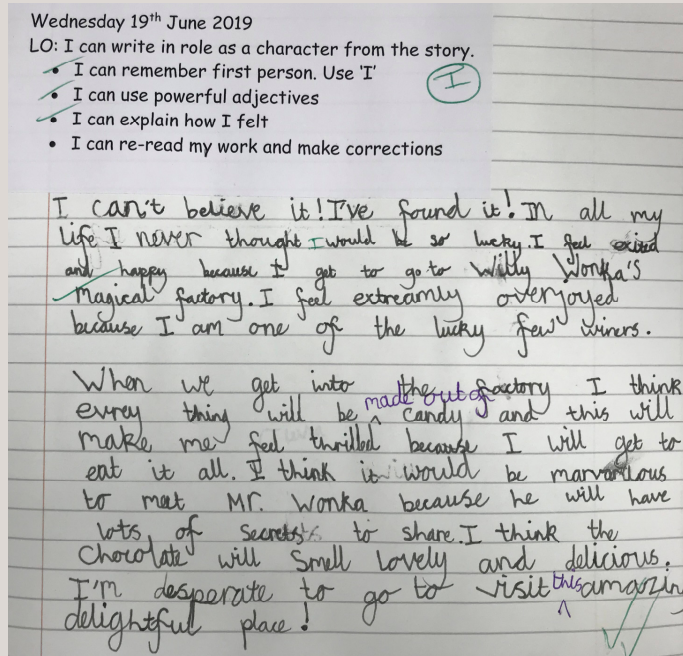 Wednesday 19th June 2019
LO: I can write in role as a character from the story.
• I can remember first person. Use 'I'
I
• I can use powerful adjectives
• I can explain how I felt
• I can re-read my work and make corrections
I can't believe it! I've found it! In all my
life I never thought I would be so lucky. I feel exited
and happy because I get to go to Willy Wonka's
magical factory. I feel extreamly overjoyed
because I am one of the lucky few winers.
When we get into the factory I think
made out of
evrey thing will be candy and this will
make me feel thrilled because I will get to
eat it all. I think it would be marvarllous
to meet Mr. Wonka because he will have
lots of secrets to share. I think the
Chocolate will smell lovely and delicious.
I'm desperate to go to visit this amazing
delightful place!